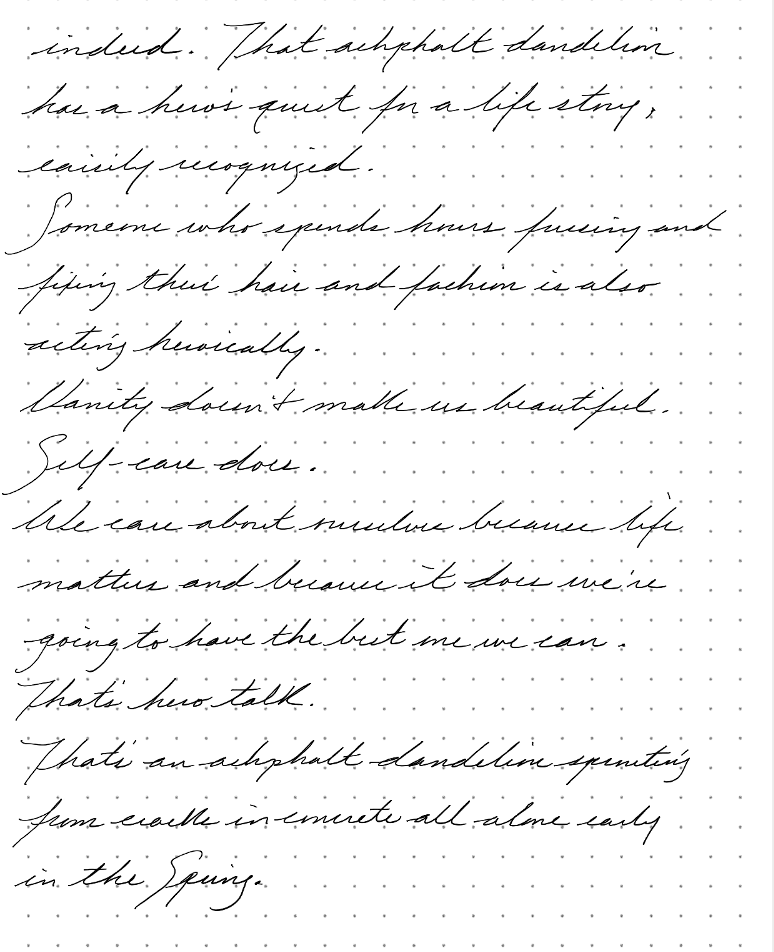 indeed. That ashphalt dandelion
has a hero's quest for a life story,
easily recognized.
Someone who spends hours fussing and
fixing their hair and fashion is also
acting heroically.
Vanity doesn't make us beautiful.
Self-care does.
We care about ourselves because life
matters and because it does we're
going to have the best one we can.
That's hero talk.
That's an ashphalt dandelion sprouting
from cracks in concrete all alone early
in the Spring.